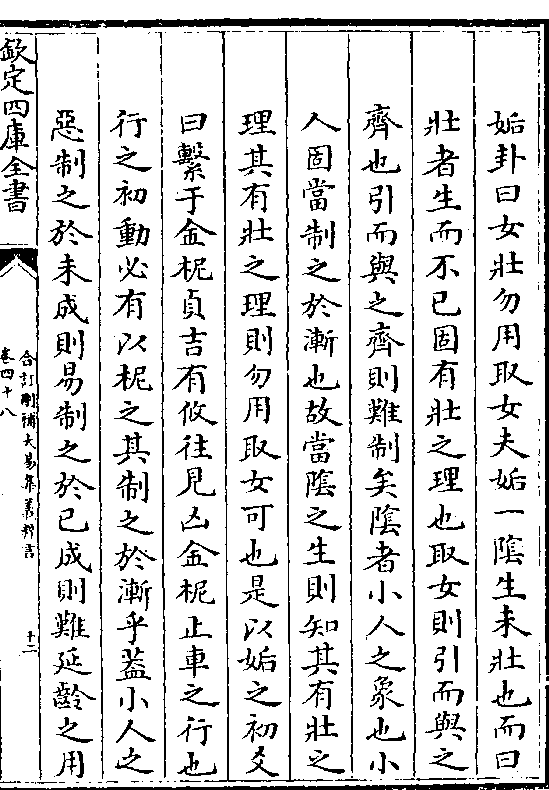 姤卦曰女壯勿用取女夫姤一陰生未壯也而曰
壯者生而不已固有壯之理也取女則引而與之
齊也引而與之齊則難制矣陰者小人之象也小
人固當制之於漸也故當陰之生則知其有壯之
理其有壯之理則勿用取女可也是以姤之初爻
曰繫于金柅貞吉有攸往見凶金柅止車之行也
行之初動必有以柅之其制之於漸乎葢小人之
惡制之於未成則易制之於已成則難延齡之用
欽定四庫全書
合訂刪補大易集義粹言
卷四十八
十二